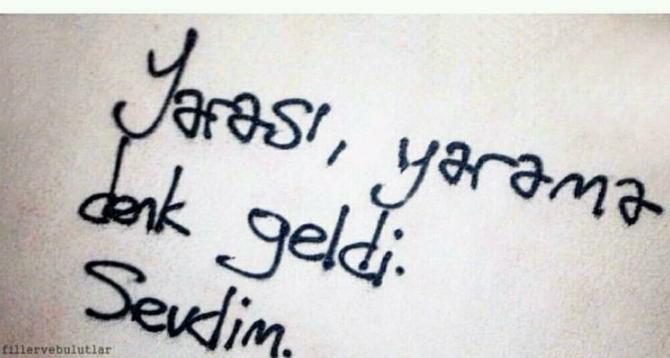 Yarası, yarama
denk geldi.
Sevdim.
fillervebulutlar